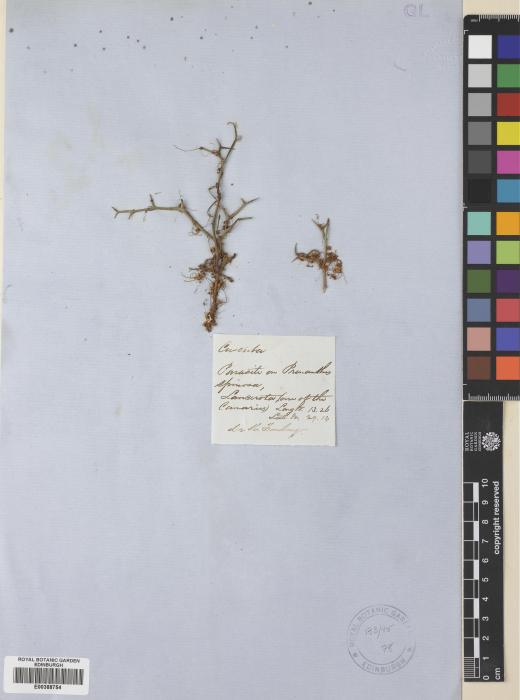 GL
copyright reserved
Cuscuta
Parasite on Prenanthes
spinosa,
Lancerota (one of the
Canaries) Longte 13.26
Latde N. 29.14
ROYAL BOTANIC GARDEN
EDINBURGH
183/45
78
ROYAL BOTANIC GARDEN
EDINBURGH
E00388754
ROYAL
BOTANIC
GARDEN
EDINBURGH
copyright reserved
0 1 2 3 4 5 6 7 8 9 10
cm